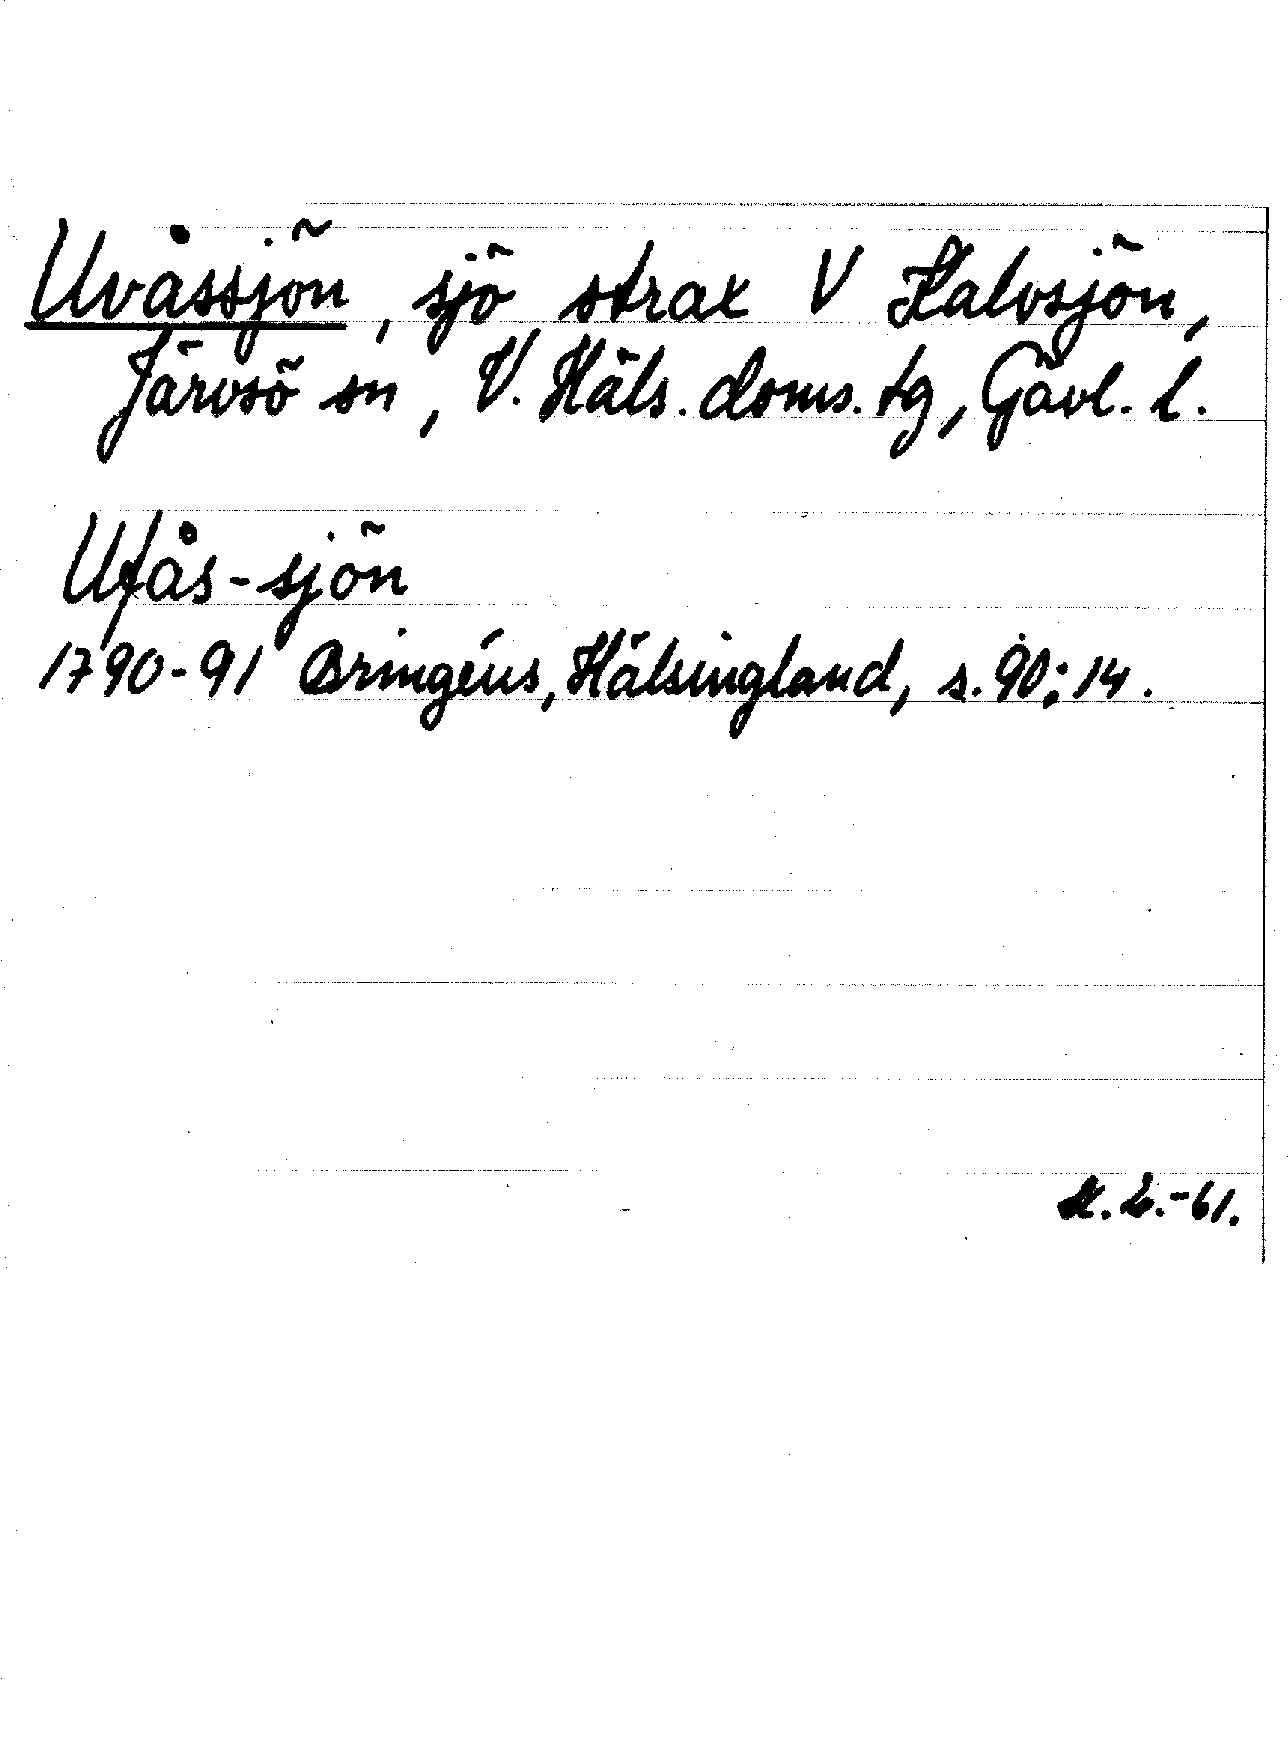 Uvåssjön, sjö strax V Kalvsjön,
Järvsö sn, V. Häls. doms. tg, Gävl. l.
Ufås-sjön
1790-91 Bringéus, Hälsingland, s. 90:14.
K. L. -61.